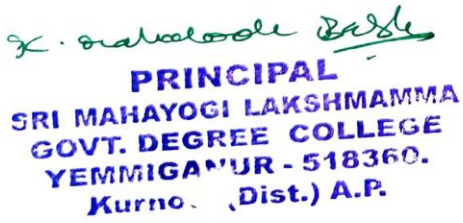 PRINCIPAL
SRI MAHAYOGI LAKSHMAMMA
GOVT. DEGREE COLLEGE
YEMMIGANUR - 518360.
Kurno. (Dist.) A.P.